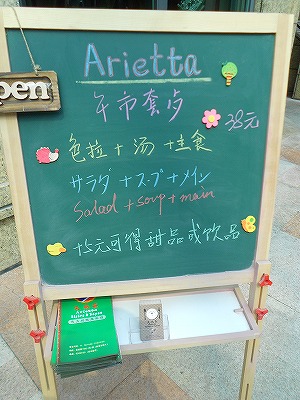 Arietta
open
午市套歺
38元
色拉+汤+主食
サラダ+スープ+メイン
Salad+soup+main
+5元可得甜品或饮品